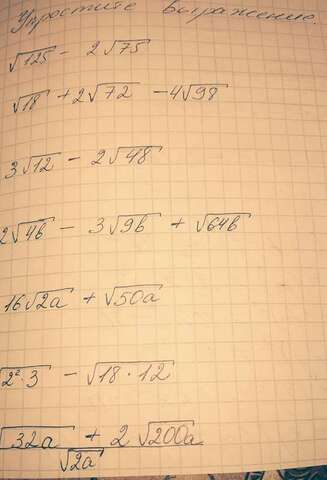 Упростите выражение.
√125 - 2√75
√18 + 2√72 - 4√98
3√12 - 2√48
2√4b - 3√9b + √64b
16√2a + √50a
√2²·3 - √18·12
√32a + 2√200a
√2a